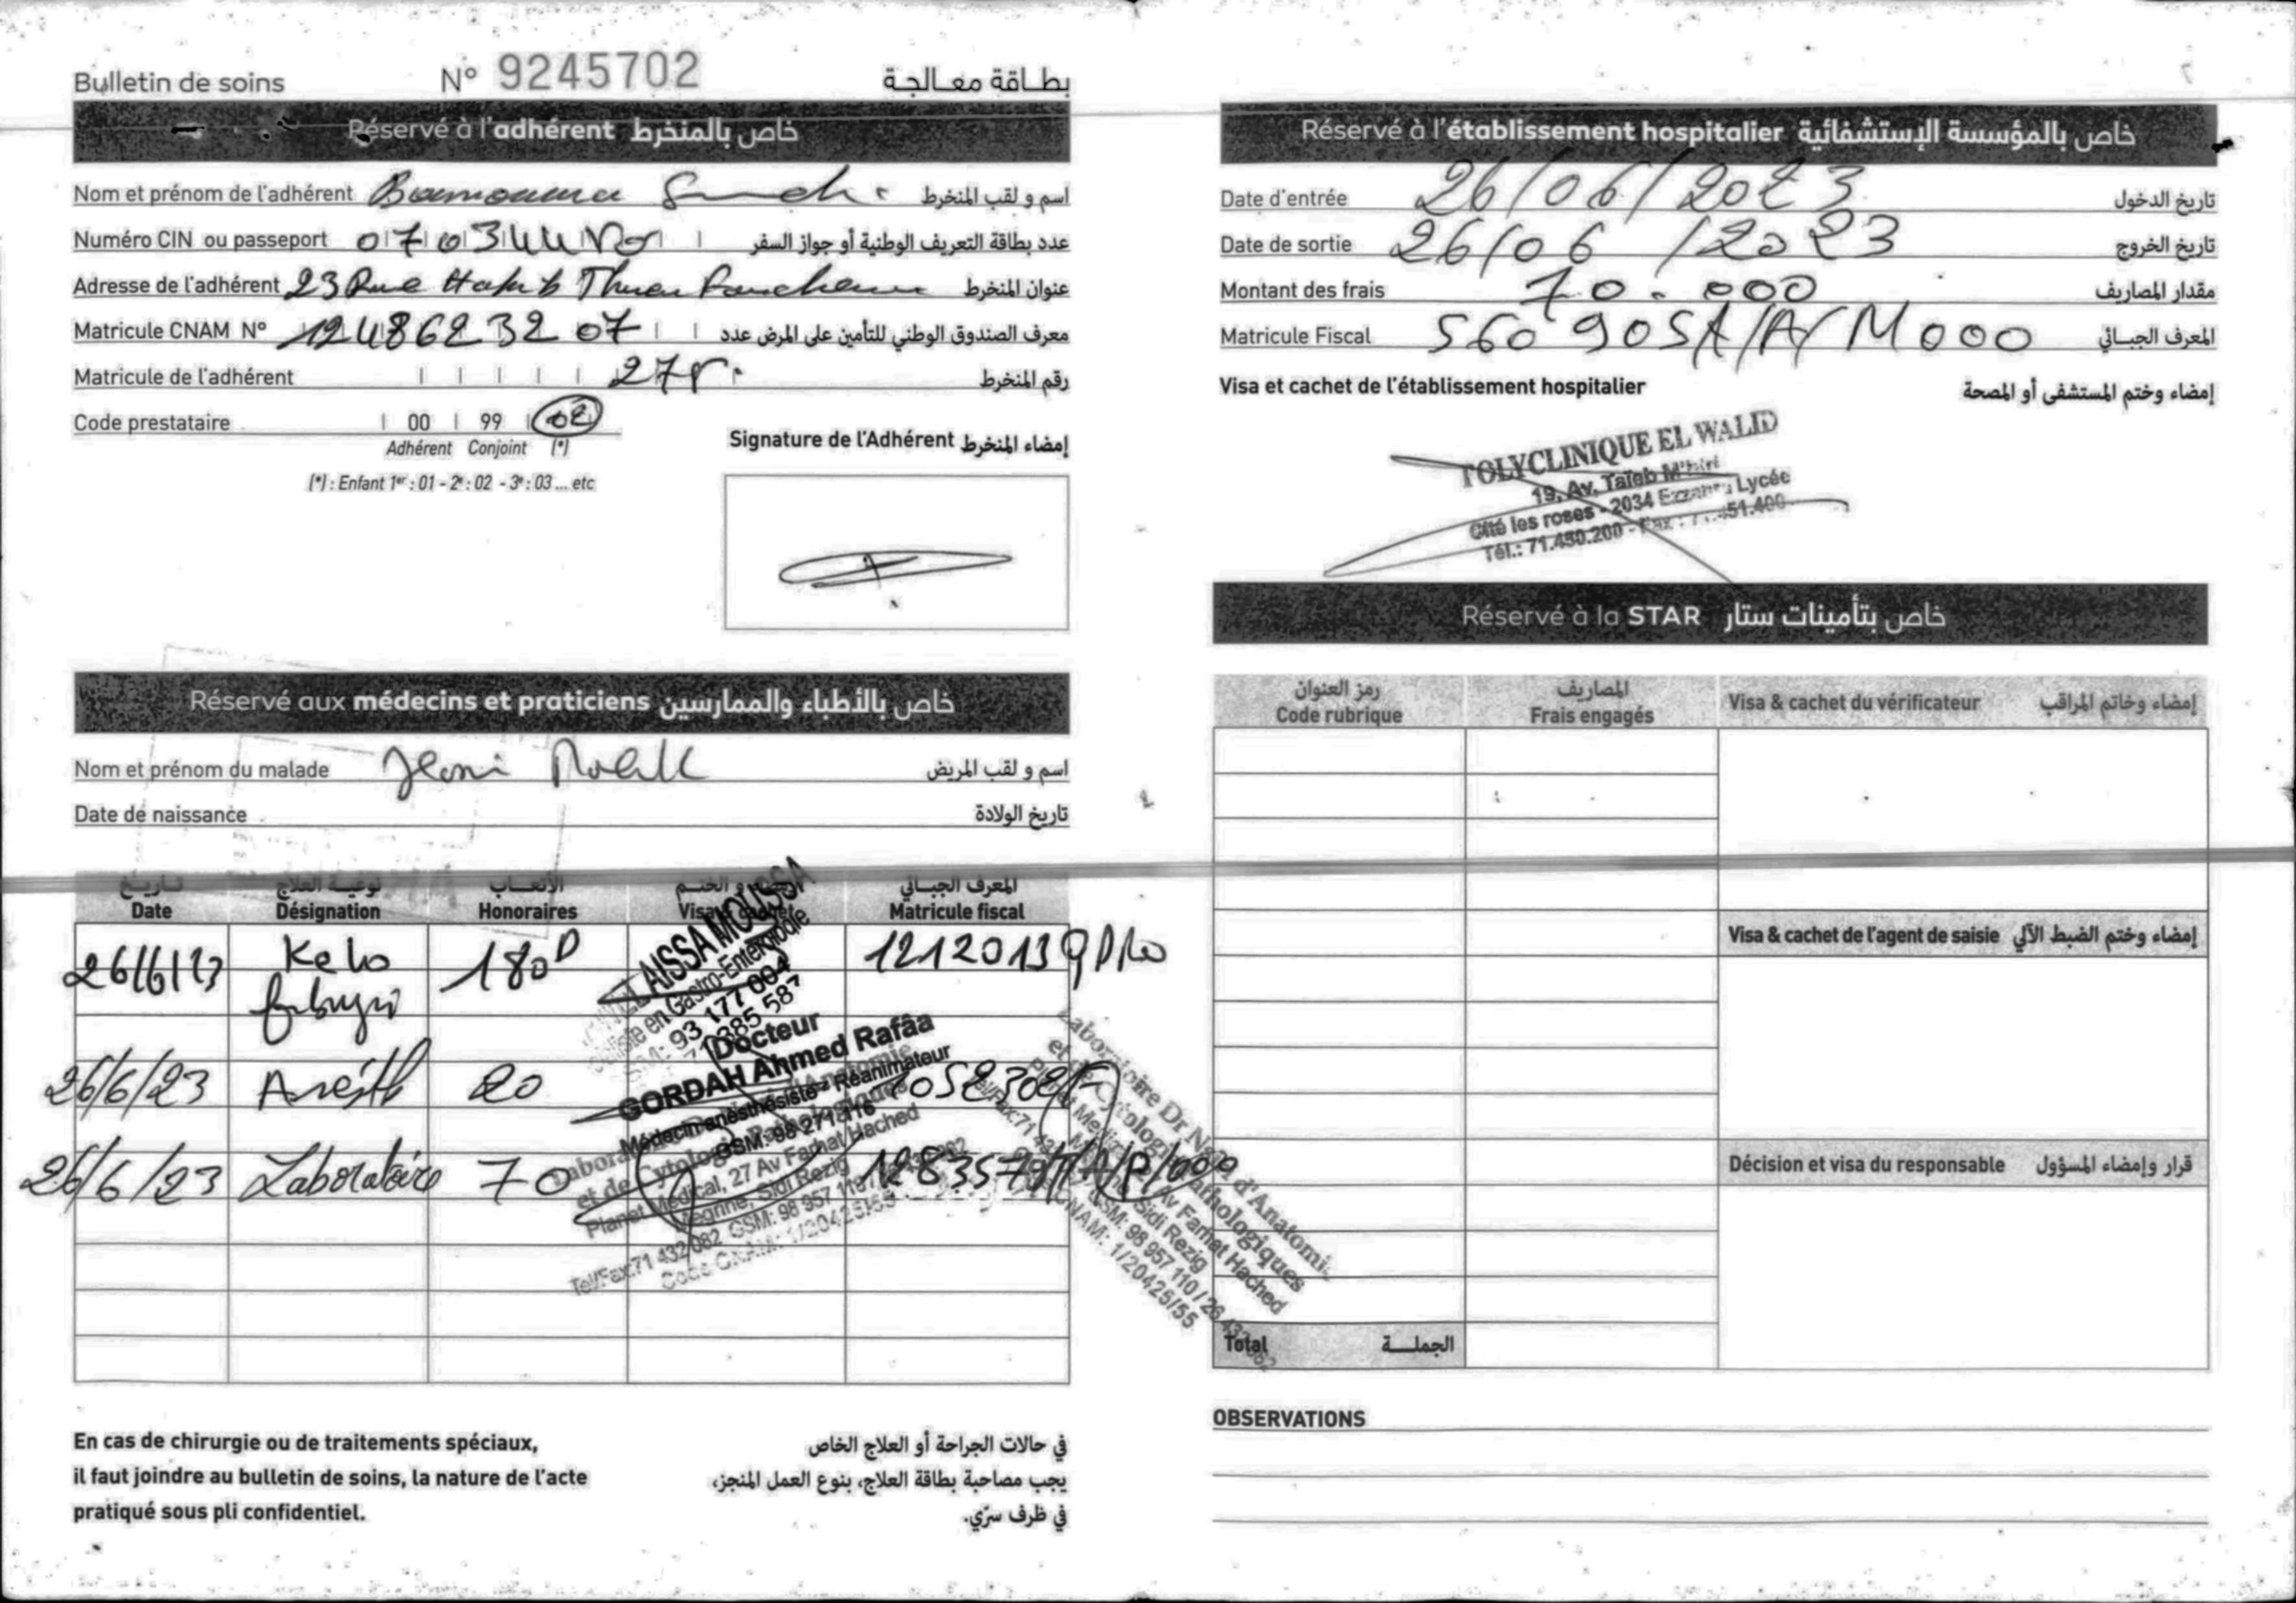 Bulletin de soins N° 9245702 بطاقة معالجة
Réservé à l'adhérent خاص بالمنخرط
Nom et prénom de l'adhérent اسم و لقب المنخرط
Numéro CIN ou passeport عدد بطاقة التعريف الوطنية أو جواز السفر
Adresse de l'adhérent 23 Rue عنوان المنخرط
Matricule CNAM N° 1248623207 معرف الصندوق الوطني للتأمين على المرض عدد
Matricule de l'adhérent رقم المنخرط
Code prestataire 00 99 02
Adhérent Conjoint (*)
(*) : Enfant 1er : 01 - 2e : 02 - 3e : 03 ... etc
Signature de l'Adhérent إمضاء المنخرط
Réservé aux médecins et praticiens خاص بالأطباء والممارسين
Nom et prénom du malade اسم و لقب المريض
Date de naissance تاريخ الولادة
تاريخ نوعية العلاج الأتعاب المعرف الجبائي
Date Désignation Honoraires Visa Matricule fiscal
26/6/23 180D 1212013
AISSA MOUSSA
en Gastro-Entérologie
93 177 004
26/6/23 Anésth 20
Docteur
GORDAH Ahmed Rafâa
Médecin anesthésiste - Réanimateur
GSM: 98 271 116
26/6/23 Laboratoire 70
et de Cytologie
Planet Médical, 27 Av Farhat Hached
Megrine, Sidi Rezig
Tel/Fax:71 432 082 GSM: 98 957 110
Code CNAM: 1/20425/55
Laboratoire Dr d'Anatomie
et de Cytologie Pathologiques
Av Farhat Hached
Sidi Rezig
GSM: 98 957 110 / 26 432 082
CNAM: 1/20425/55
En cas de chirurgie ou de traitements spéciaux,
il faut joindre au bulletin de soins, la nature de l'acte
pratiqué sous pli confidentiel.
في حالات الجراحة أو العلاج الخاص
يجب مصاحبة بطاقة العلاج، بنوع العمل المنجز،
في ظرف سرّي.
Réservé à l'établissement hospitalier خاص بالمؤسسة الإستشفائية
Date d'entrée 26/06/2023 تاريخ الدخول
Date de sortie 26/06/2023 تاريخ الخروج
Montant des frais 70.000 مقدار المصاريف
Matricule Fiscal 560905A/A/M000 المعرف الجبائي
Visa et cachet de l'établissement hospitalier إمضاء وختم المستشفى أو المصحة
POLYCLINIQUE EL WALID
19, Av. Taïeb M'hiri
Cité les roses - 2034 Ezzahra Lycée
Tél.: 71.450.200 - Fax : 71.451.400
Réservé à la STAR خاص بتأمينات ستار
رمز العنوان المصاريف
Code rubrique Frais engagés Visa & cachet du vérificateur إمضاء وخاتم المراقب
Visa & cachet de l'agent de saisie إمضاء وختم الضبط الآلي
Décision et visa du responsable قرار وإمضاء المسؤول
Total الجملة
OBSERVATIONS